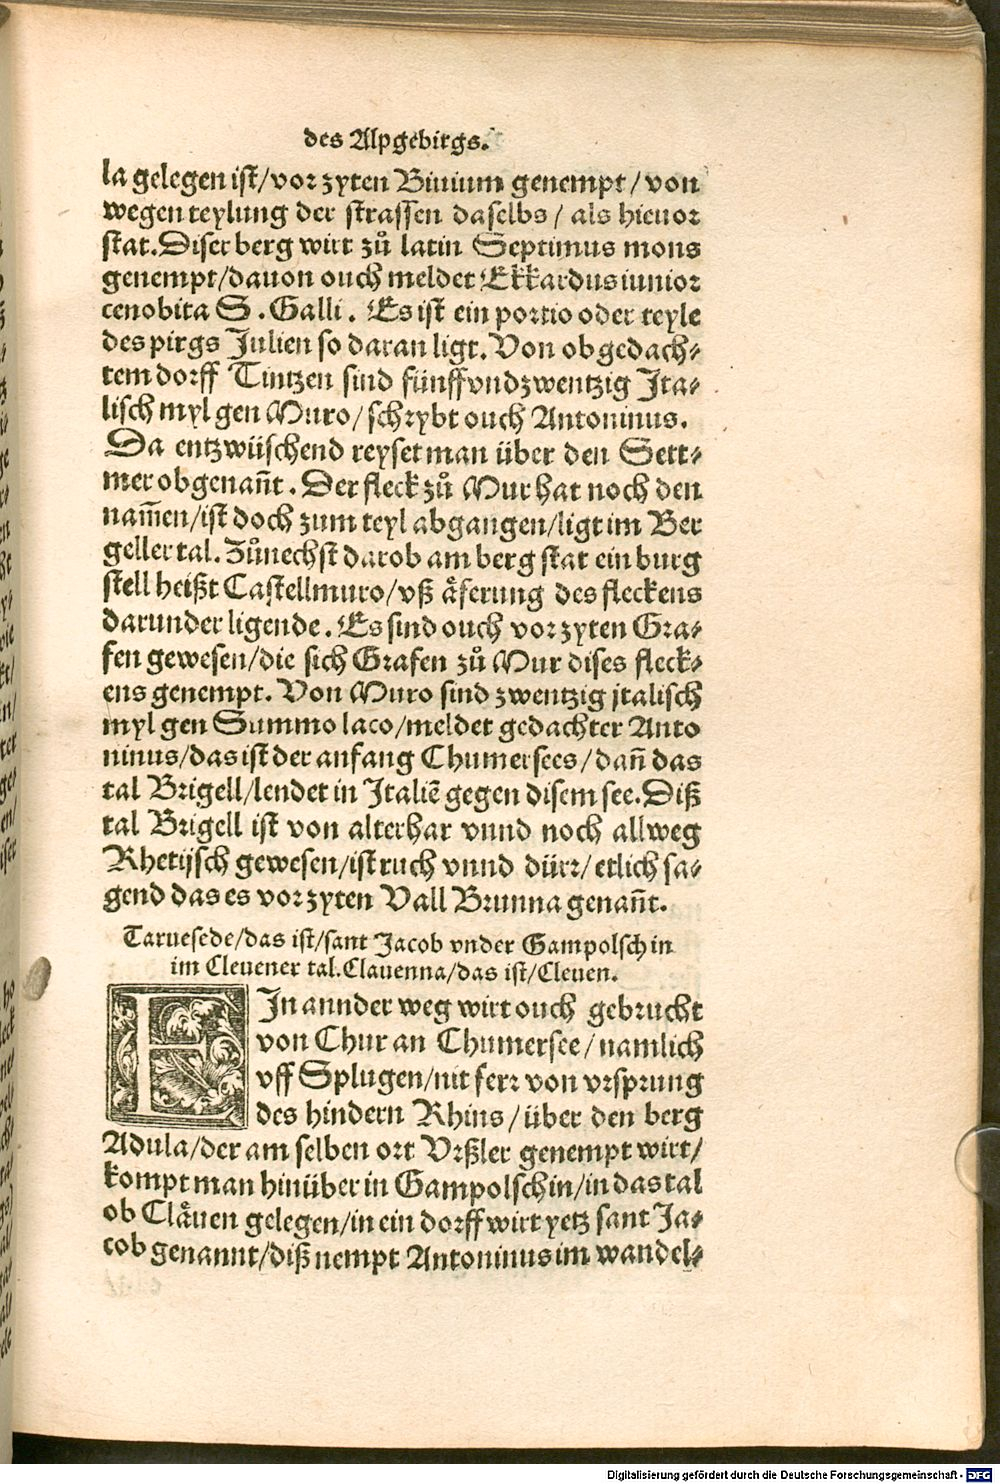 des Alpgebirgs.
la gelegen ist/vor zyten Biuium genempt/von
wegen teylung der strassen daselbs/als hieuor
stat. Diser berg wirt zů latin Septimus mons
genempt/dauon ouch meldet Ekkardus iunior
cenobita S. Galli. Es ist ein portio oder teyle
des pirgs Julien so daran ligt. Von obgedach-
tem dorff Tintzen sind fünff vnd zwentzig Jta-
lisch myl gen Muro/schrybt ouch Antoninus.
Da entzwüschend reyset man über den Sett-
mer obgenañt. Der fleck zů Mur hat noch den
nam̃en/ist doch zum teyl abgangen/ligt im Ber
geller tal. Zůnechst darob am berg stat ein burg
stell heißt Castellmuro/vß åferung des fleckens
darunder ligende. Es sind ouch vor zyten Gra-
fen gewesen/die sich Grafen zů Mur dises fleck-
ens genempt. Von Muro sind zwentzig jtalisch
myl gen Summo laco/meldet gedachter Anto
ninus/das ist der anfang Chumersees/dañ das
tal Brigell/lendet in Italiē gegen disem see. Diß
tal Brigell ist von alterhar vnnd noch allweg
Rhetijsch gewesen/ist ruch vnnd dürr/etlich sa-
gend das es vor zyten Vall Brunna genañt.
Taruesede/das ist/sant Jacob vnder Gampolschin
im Cleuener tal. Clauenna/das ist/Cleuen.
EIn annder weg wirt ouch gebrucht
von Chur an Chumersee/namlich
vff Splugen/nit ferr von vrsprung
des hindern Rhins/über den berg
Adula/der am selben ort Vrßler genempt wirt/
kompt man hinüber in Gampolschin/in das tal
ob Clåuen gelegen/in ein dorff wirt yetz sant Ja-
cob genannt/diß nempt Antoninus im wandel-
Digitalisierung gefördert durch die Deutsche Forschungsgemeinschaft - DFG